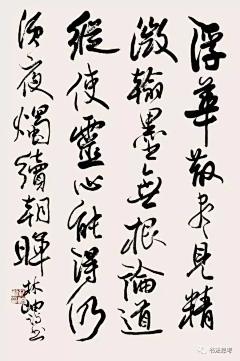 浮華散盡見精
微翰墨無根論道
縱使靈心能得仍
須夜燭續朝暉
林岫